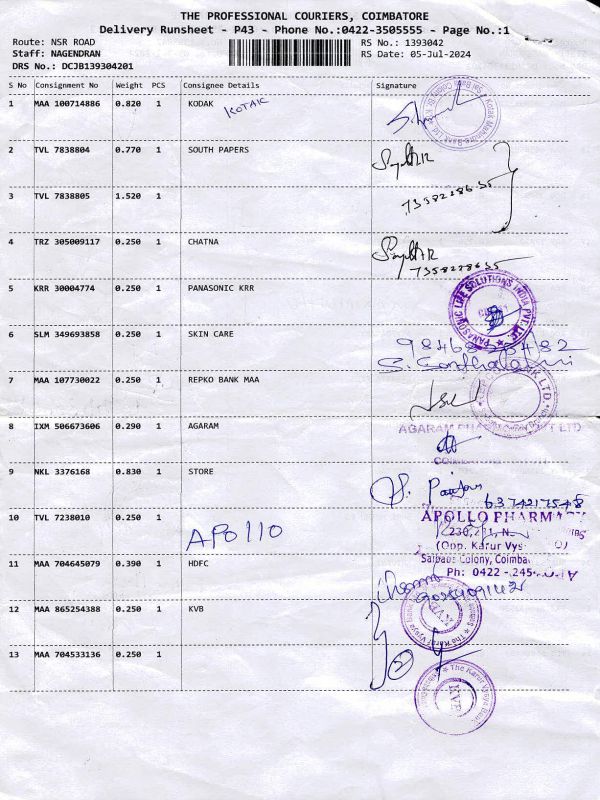 THE PROFESSIONAL COURIERS, COIMBATORE
Delivery Runsheet - P43 - Phone No.:0422-3505555 - Page No.:1
Route: NSR ROAD RS No.: 1393042
Staff: NAGENDRAN RS Date: 05-Jul-2024
DRS No.: DCJB139304201
S No Consignment No Weight PCS Consignee Details Signature
1 MAA 100714886 0.820 1 KODAK
KOTAK
2 TVL 7838804 0.770 1 SOUTH PAPERS
3 TVL 7838805 1.520 1
4 TRZ 305009117 0.250 1 CHATNA
5 KRR 30004774 0.250 1 PANASONIC KRR
PANASONIC LIFE SOLUTIONS INDIA PVT. LTD.
6 SLM 349693858 0.250 1 SKIN CARE
7 MAA 107730022 0.250 1 REPKO BANK MAA
8 IXM 506673606 0.290 1 AGARAM
AGARAM
9 NKL 3376168 0.830 1 STORE
6374217548
10 TVL 7238010 0.250 1
APOLLO
APOLLO PHARMACY
(Opp. Karur Vys
Saibaba Colony, Coimba
Ph: 0422 - 245
11 MAA 704645079 0.390 1 HDFC
12 MAA 865254388 0.250 1 KVB
KVB
13 MAA 704533136 0.250 1
The Karur Vysya Bank
KVB